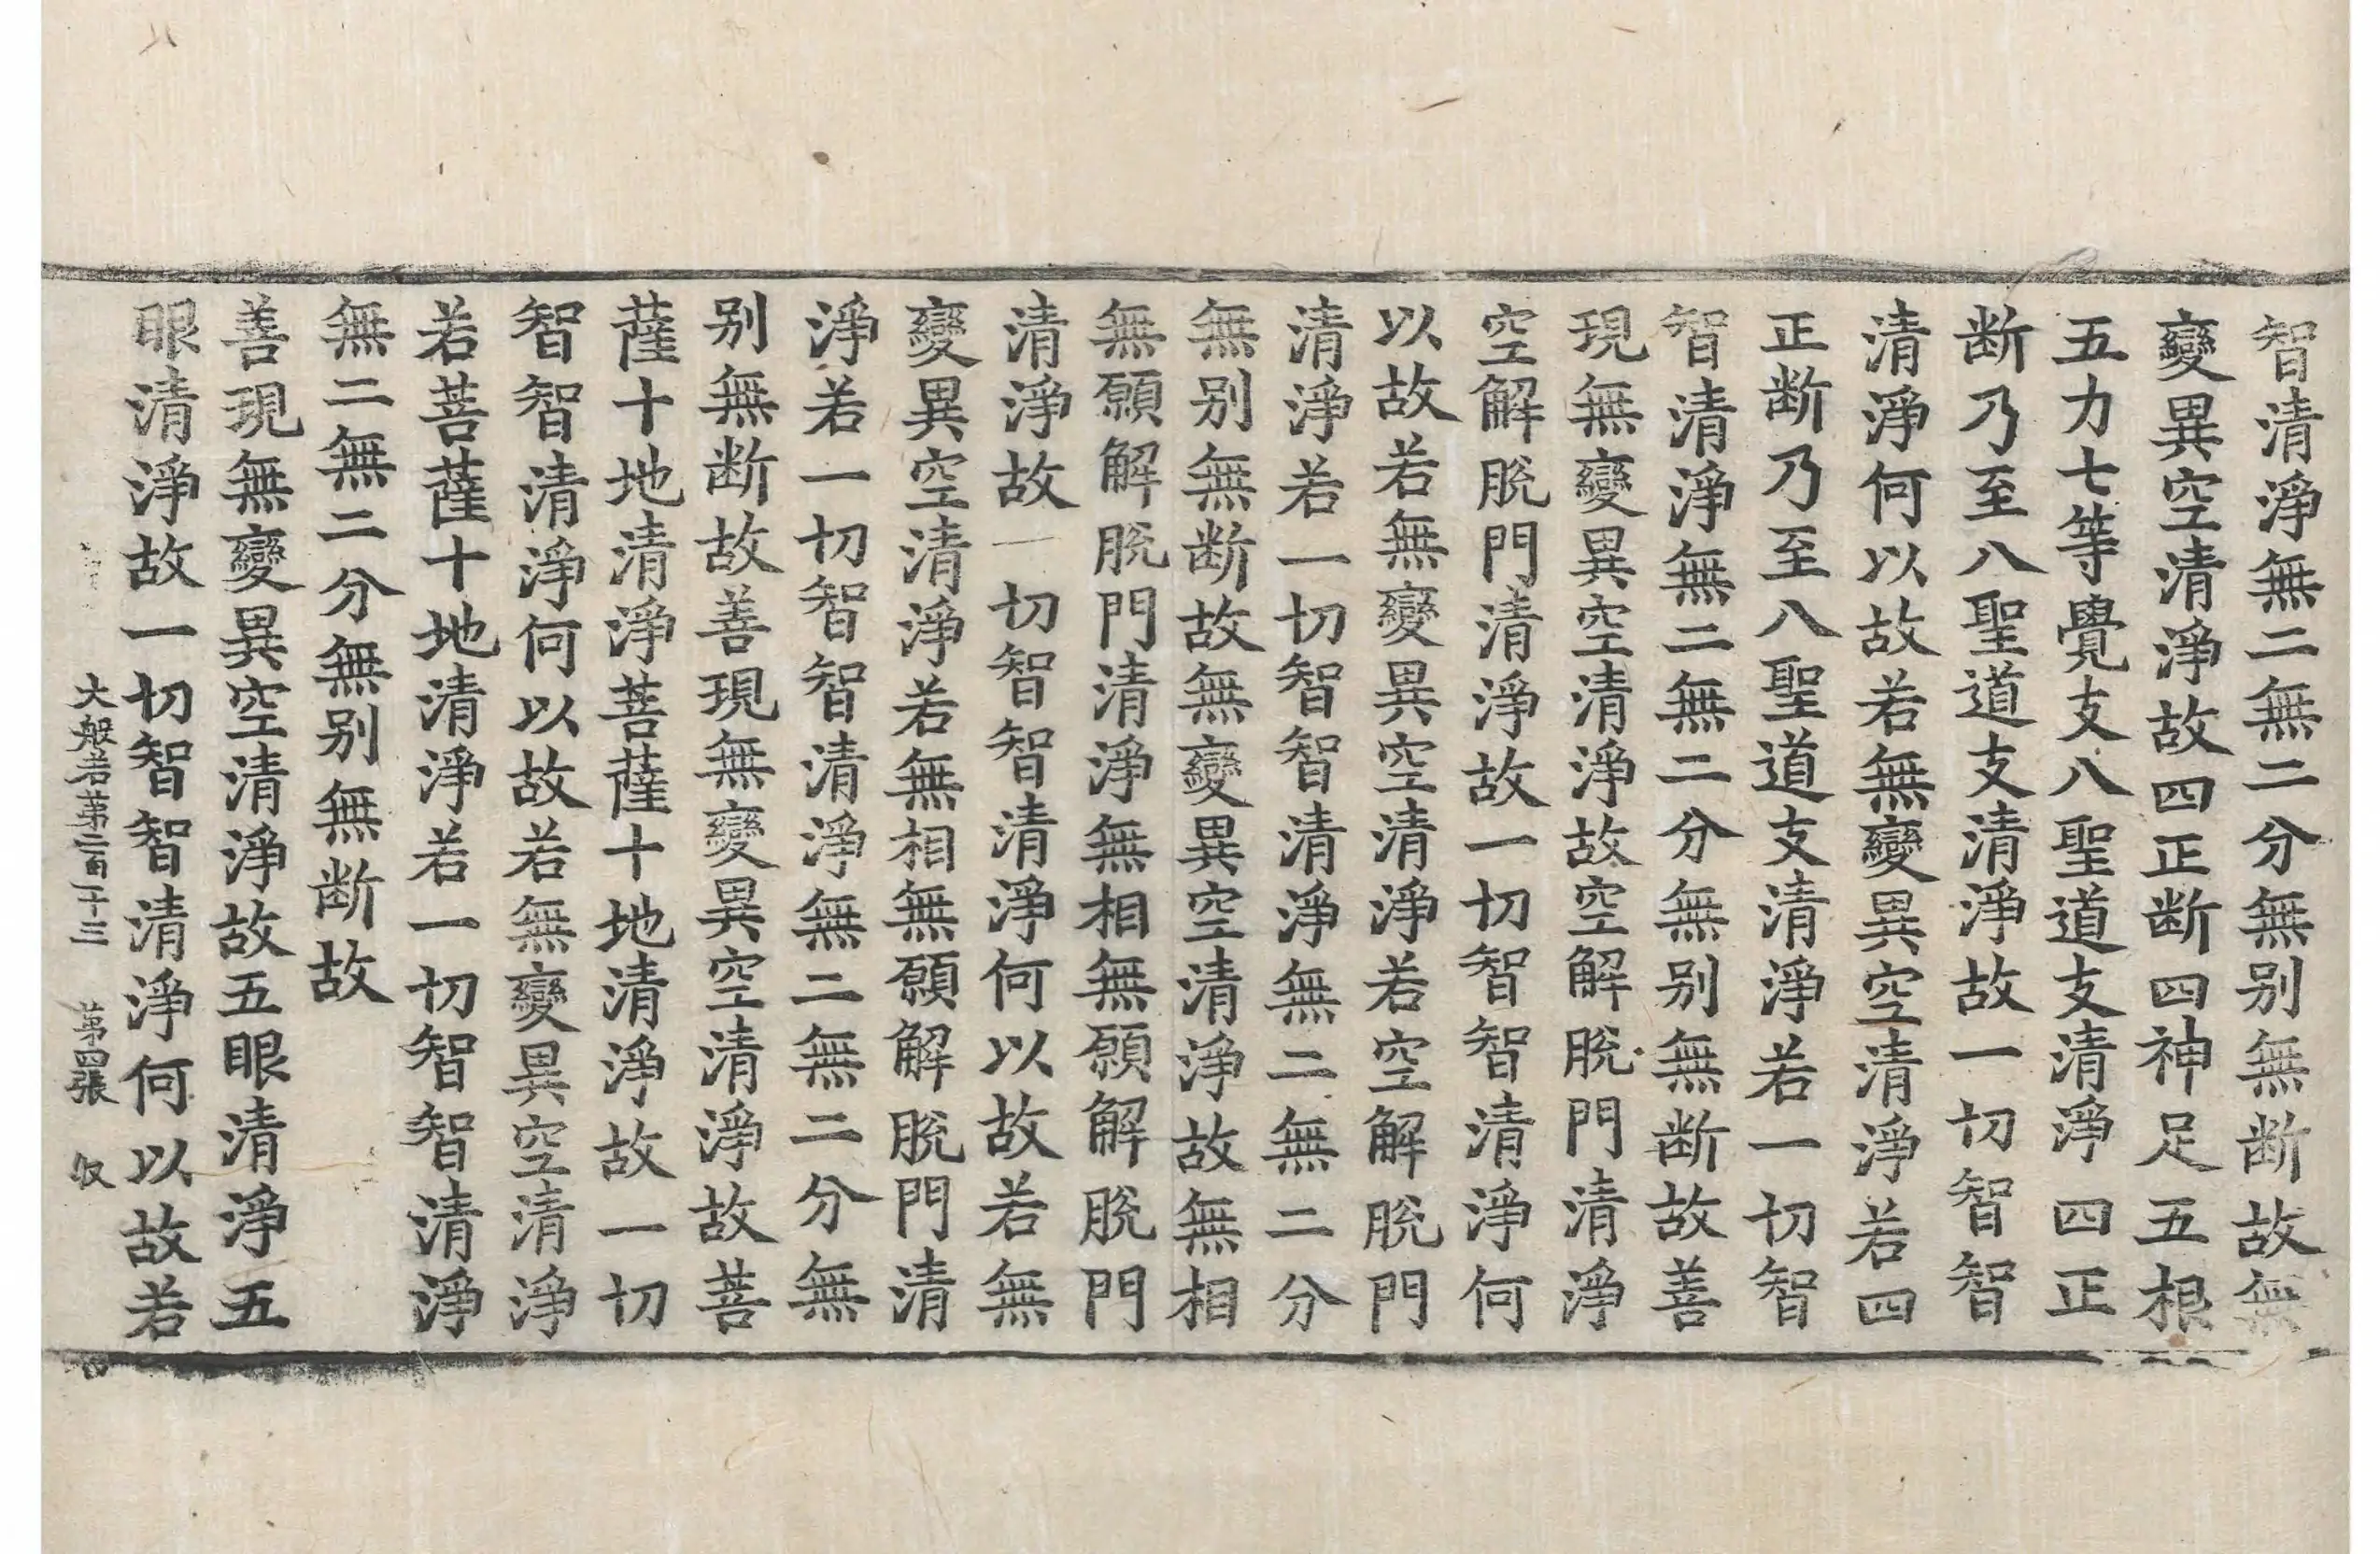 智清淨無二無二分無别無断故無
變異空清淨故四正断四神足五根
五力七等覺支八聖道支清淨四正
断乃至八聖道支清淨故一切智智
清淨何以故若無變異空清淨若四
正断乃至八聖道支清淨若一切智
智清淨無二無二分無别無断故善
現無變異空清淨故空解脫門清淨
空解脫門清淨故一切智智清淨何
以故若無變異空清淨若空解脫門
清淨若一切智智清淨無二無二分
無别無断故無變異空清淨故無相
無願解脫門清淨無相無願解脫門
清淨故一切智智清淨何以故若無
變異空清淨若無相無願解脫門清
淨若一切智智清淨無二無二分無
别無断故善現無變異空清淨故菩
薩十地清淨菩薩十地清淨故一切
智智清淨何以故若無變異空清淨
若菩薩十地清淨若一切智智清淨
無二無二分無别無断故
善現無變異空清淨故五眼清淨五
眼清淨故一切智智清淨何以故若
大般若第二百一十三 第四張 収